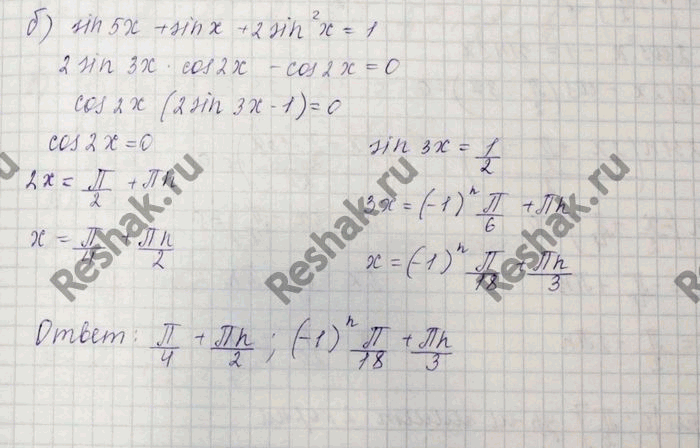 б) sin 5x + sin x + 2 sin² x = 1
2 sin 3x · cos 2x - cos 2x = 0
cos 2x (2 sin 3x - 1) = 0
cos 2x = 0
2x = П/2 + Пn
x = П/4 + Пn/2
sin 3x = 1/2
3x = (-1)ⁿ П/6 + Пn
x = (-1)ⁿ П/18 + Пn/3
Ответ: П/4 + Пn/2 ; (-1)ⁿ П/18 + Пn/3
Reshak.ru
Reshak.ru
Reshak.ru